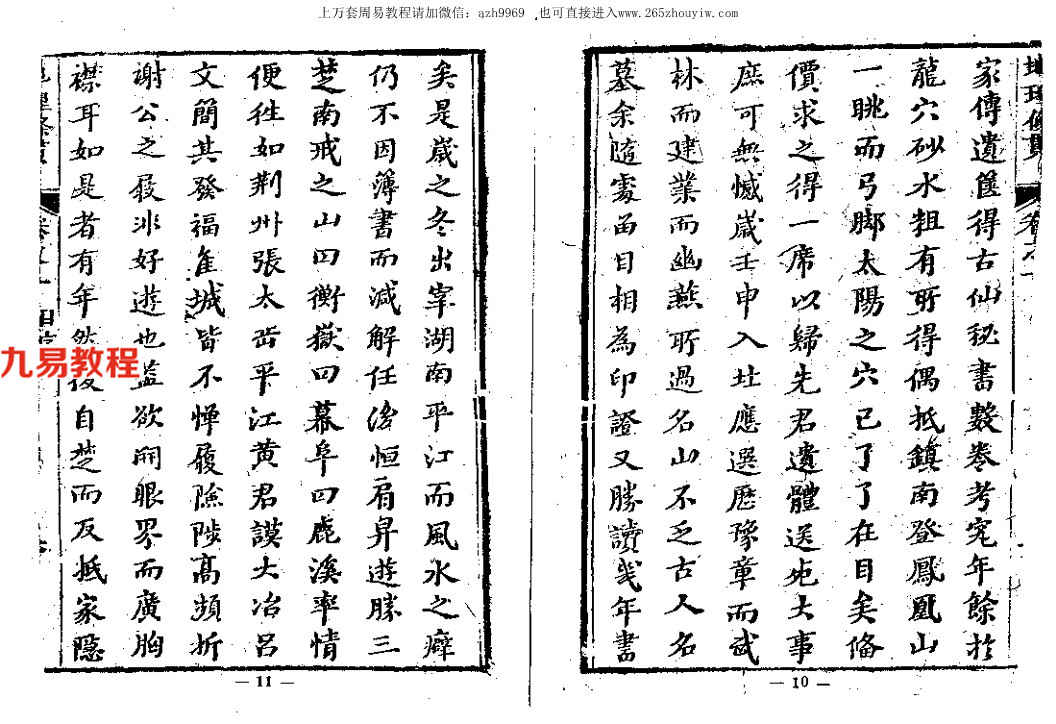 上万套周易教程请加微信：azh9969 ，也可直接进入www.265zhouyiw.com
家傳遺篋得古仙秘書數卷考究年餘於
龍穴砂水粗有所得偶抵鎮南登鳳凰山
一眺而弓脚太陽之穴已了了在目矣俻
價求之得一席以歸先君遺體送死大事
庶可無憾歲壬申入北應選歷豫章而武
林而建業而幽燕所過名山不乏古人名
墓余隨處留目相為印證又勝讀幾年書
— 10 —
矣是歲之冬出宰湖南平江而風水之癖
仍不因薄書而減解任後恒肩舁遊勝三
楚南戒之山曰衡嶽曰幕阜曰鹿溪率情
便徃如荆州張太岳平江黄君謨大冶呂
文簡其發福隹城皆不憚履險陟高頻折
謝公之屐非好遊也葢欲開眼界而廣胸
襟耳如是者有年然後自楚而反抵家隠
— 11 —
九易教程